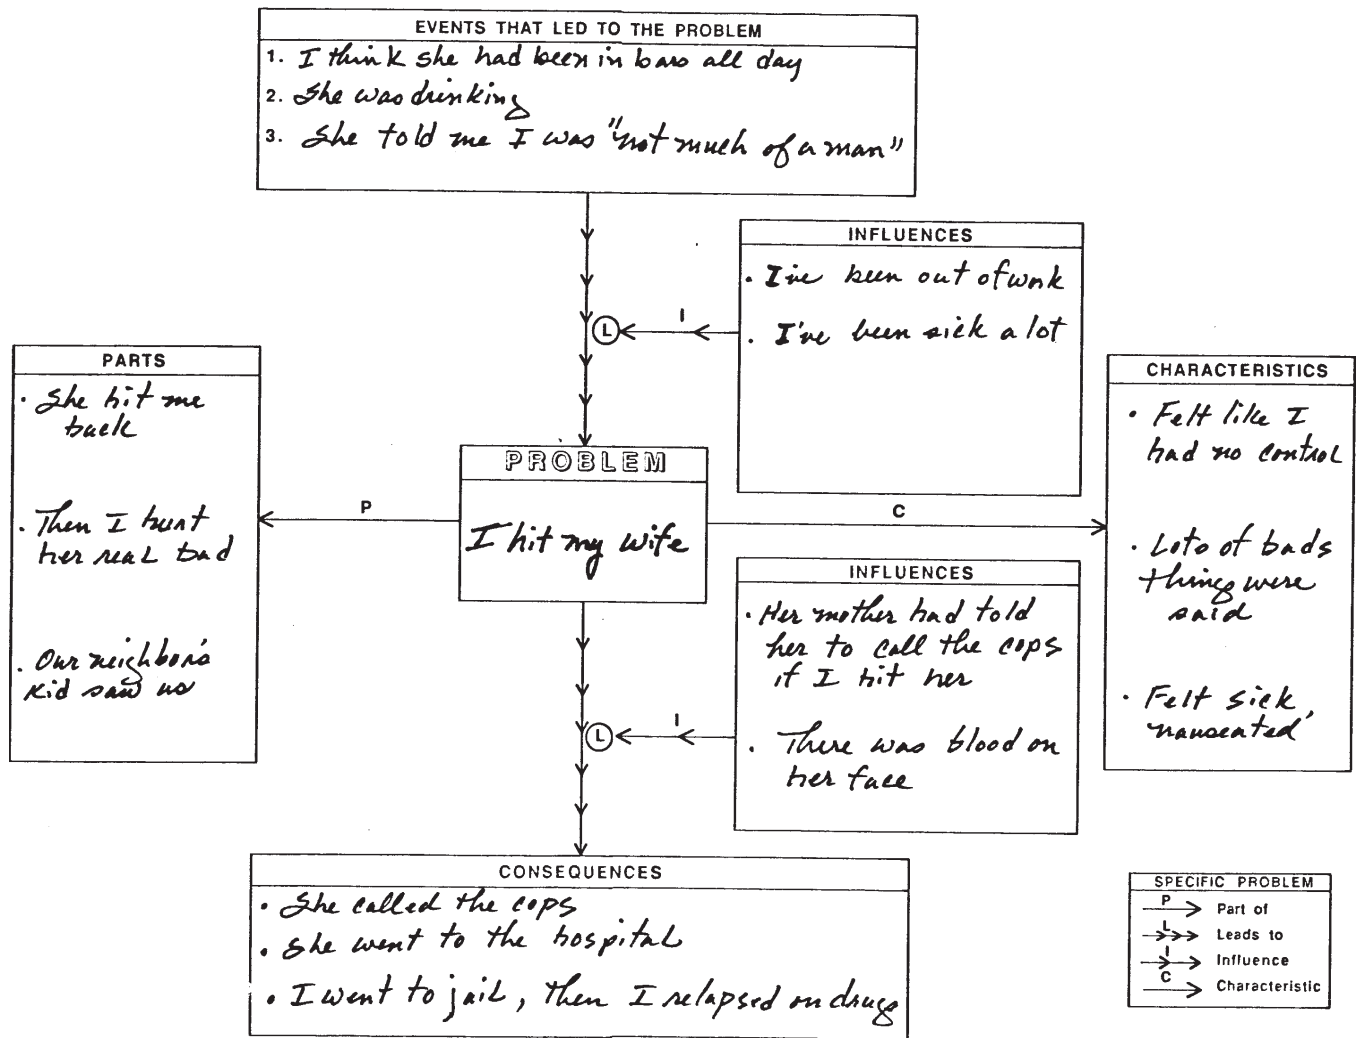 EVENTS THAT LED TO THE PROBLEM
1. I think she had been in bars all day
2. She was drinking
3. She told me I was "not much of a man"
INFLUENCES
. I've been out of work
. I've been sick a lot
I
L
PARTS
. She hit me
back
. Then I hurt
her real bad
. Our neighbor's
kid saw us
P
PROBLEM
I hit my wife
C
CHARACTERISTICS
• Felt like I
had no control
• Lots of bads
things were
said
• Felt sick,
'nauseated'
INFLUENCES
. Her mother had told
her to call the cops
if I hit her
. There was blood on
her face
I
L
CONSEQUENCES
• She called the cops
• She went to the hospital
• I went to jail, then I relapsed on drugs
SPECIFIC PROBLEM
P Part of
L Leads to
I Influence
C Characteristic